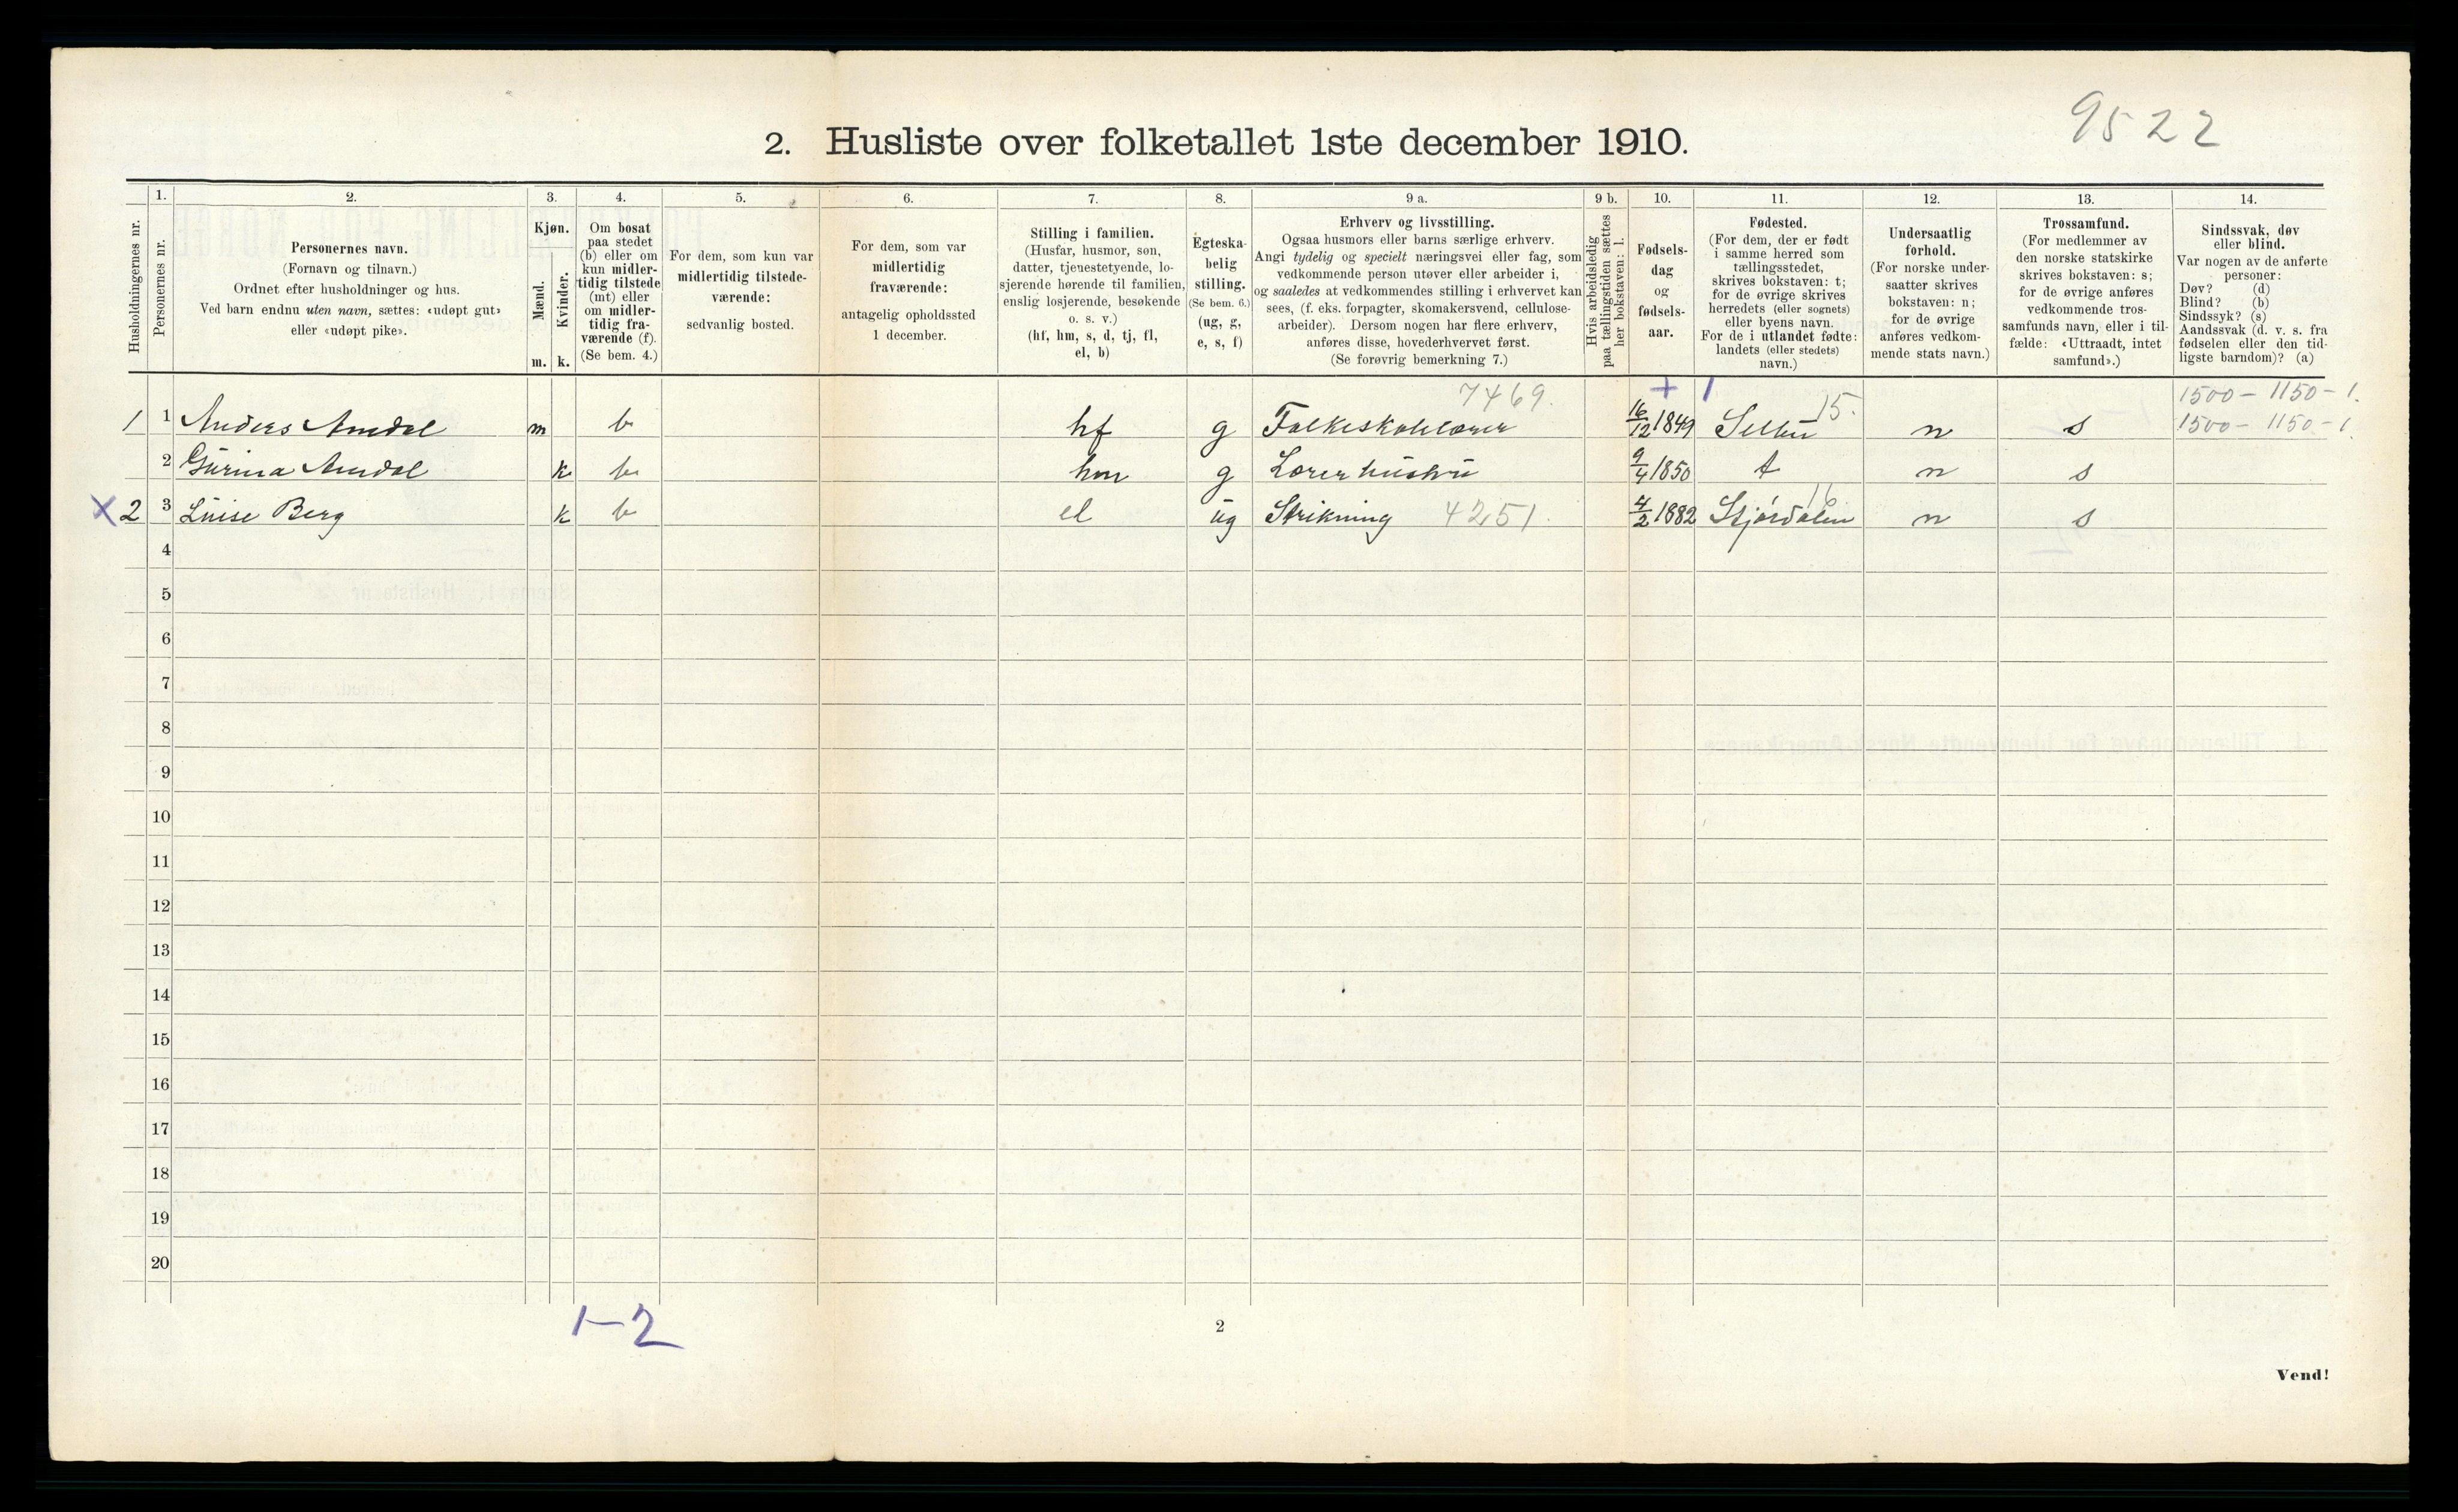 9522
2. Husliste over folketallet 1ste december 1910.
Husholdningernes nr.
1.
Personernes nr.
2.
Personernes navn.
(Fornavn og tilnavn.)
Ordnet efter husholdninger og hus.
Ved barn endnu uten navn, sættes: «udøpt gut»
eller «udøpt pike».
3.
Kjøn.
Mænd.
Kvinder.
m. k.
4.
Om bosat
paa stedet
(b) eller om
kun midler-
tidig tilstede
(mt) eller
om midler-
tidig fra-
værende (f).
(Se bem. 4.)
5.
For dem, som kun var
midlertidig tilstede-
værende:
sedvanlig bosted.
6.
For dem, som var
midlertidig
fraværende:
antagelig opholdssted
1 december.
7.
Stilling i familien.
(Husfar, husmor, søn,
datter, tjenestetyende, lo-
sjerende hørende til familien,
enslig losjerende, besøkende
o. s. v.)
(hf, hm, s, d, tj, fl,
el, b)
8.
Egteska-
belig
stilling.
(Se bem. 6.)
(ug, g,
e, s, f)
9 a.
Erhverv og livsstilling.
Ogsaa husmors eller barns særlige erhverv.
Angi tydelig og specielt næringsvei eller fag, som
vedkommende person utøver eller arbeider i,
og saaledes at vedkommendes stilling i erhvervet kan
sees, (f. eks. forpagter, skomakersvend, cellulose-
arbeider). Dersom nogen har flere erhverv,
anføres disse, hovederhvervet først.
(Se forøvrig bemerkning 7.)
9 b.
Hvis arbeidsledig
paa tællingstiden sættes
her bokstaven: l.
10.
Fødsels-
dag
og
fødsels-
aar.
11.
Fødested.
(For dem, der er født
i samme herred som
tællingsstedet,
skrives bokstaven: t;
for de øvrige skrives
herredets (eller sognets)
eller byens navn.
For de i utlandet fødte:
landets (eller stedets)
navn.)
12.
Undersaatlig
forhold.
(For norske under-
saatter skrives
bokstaven: n;
for de øvrige
anføres vedkom-
mende stats navn.)
13.
Trossamfund.
(For medlemmer av
den norske statskirke
skrives bokstaven: s;
for de øvrige anføres
vedkommende tros-
samfunds navn, eller i til-
fælde: «Uttraadt, intet
samfund».)
14.
Sindssvak, døv
eller blind.
Var nogen av de anførte
personer:
Døv? (d)
Blind? (b)
Sindssyk? (s)
Aandssvak (d. v. s. fra
fødselen eller den tid-
ligste barndom)? (a)
7469. + 1 15. 1500 - 1150 - 1.
1 1 Anders Amdal m b hf g Folkeskolelærer 16/12 1849 Selbu n s 1500 - 1150 - 1.
2 Gurina Amdal k b hm g Lærerhustru 9/4 1850 t n s
X 2 3 Luise Berg k b el ug Strikning 4251. 4/2 1882 Stjørdalen 16 n s
4
5
6
7
8
9
10
11
12
13
14
15
16
17
18
19
20
1-2
2
Vend!